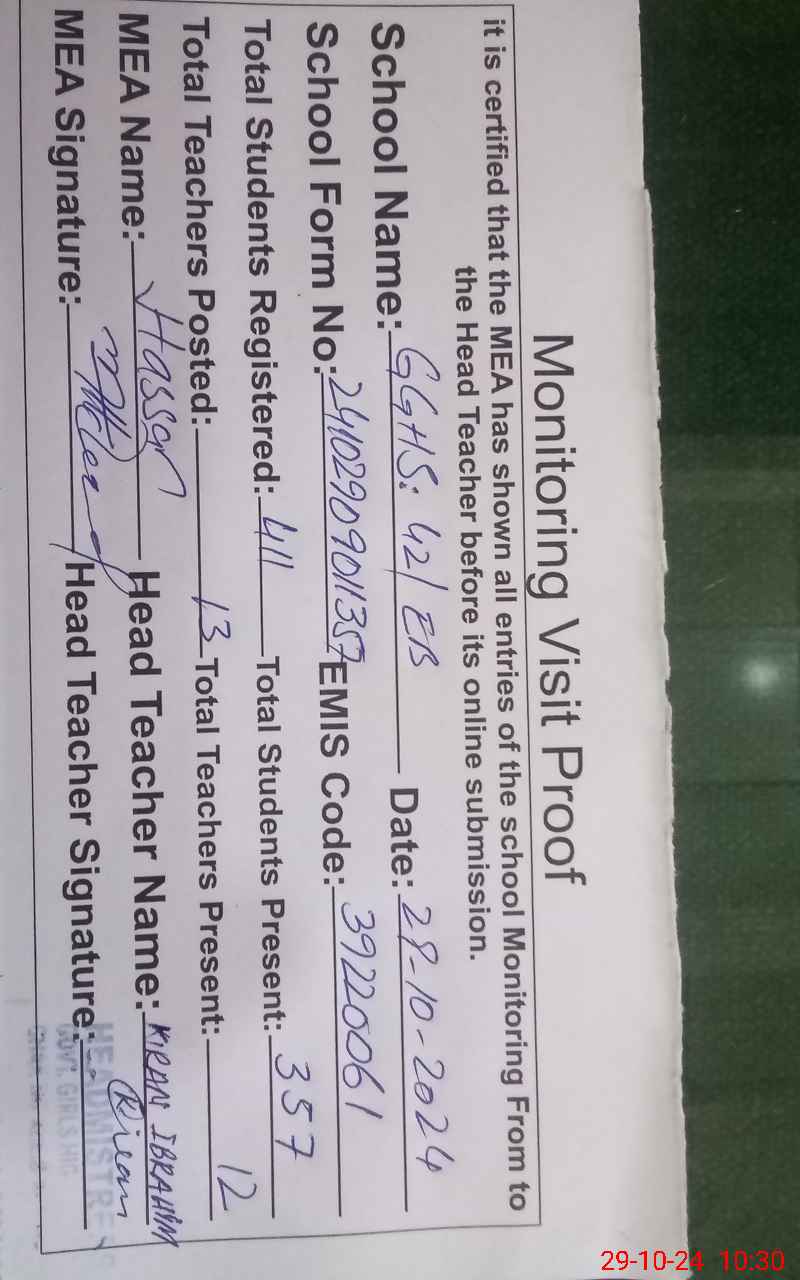 Monitoring Visit Proof
it is certified that the MEA has shown all entries of the school Monitoring From to
the Head Teacher before its online submission.
School Name: GGHS: 42/EB Date: 29-10-2024
School Form No: 24102909011357 EMIS Code: 39220061
Total Students Registered: 411 Total Students Present: 357
Total Teachers Posted: 13 Total Teachers Present: 12
MEA Name: Head Teacher Name: KIRAN IBRAHIM
MEA Signature: Head Teacher Signature: Kiran
HEADMISTRESS
GOVT. GIRLS HIG
29-10-24 10:30